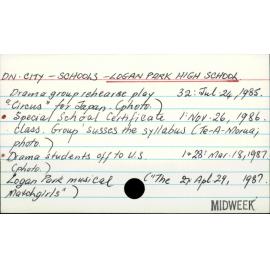 DN. CITY - SCHOOLS - LOGAN PARK HIGH SCHOOL
Drama group rehearse play 32: Jul 24, 1985.
"Circus" for Japan. (photo.)
• Special School Certificate 1: Nov. 26, 1986.
class. Group susses the syllabus (Te-A-Morua;
photo.)
• Drama students off to U.S. 1+28: Mar. 18, 1987.
(photo.)
Logan Park musical ("The 2: Apl. 29, 1987.
Matchgirls")
MIDWEEK